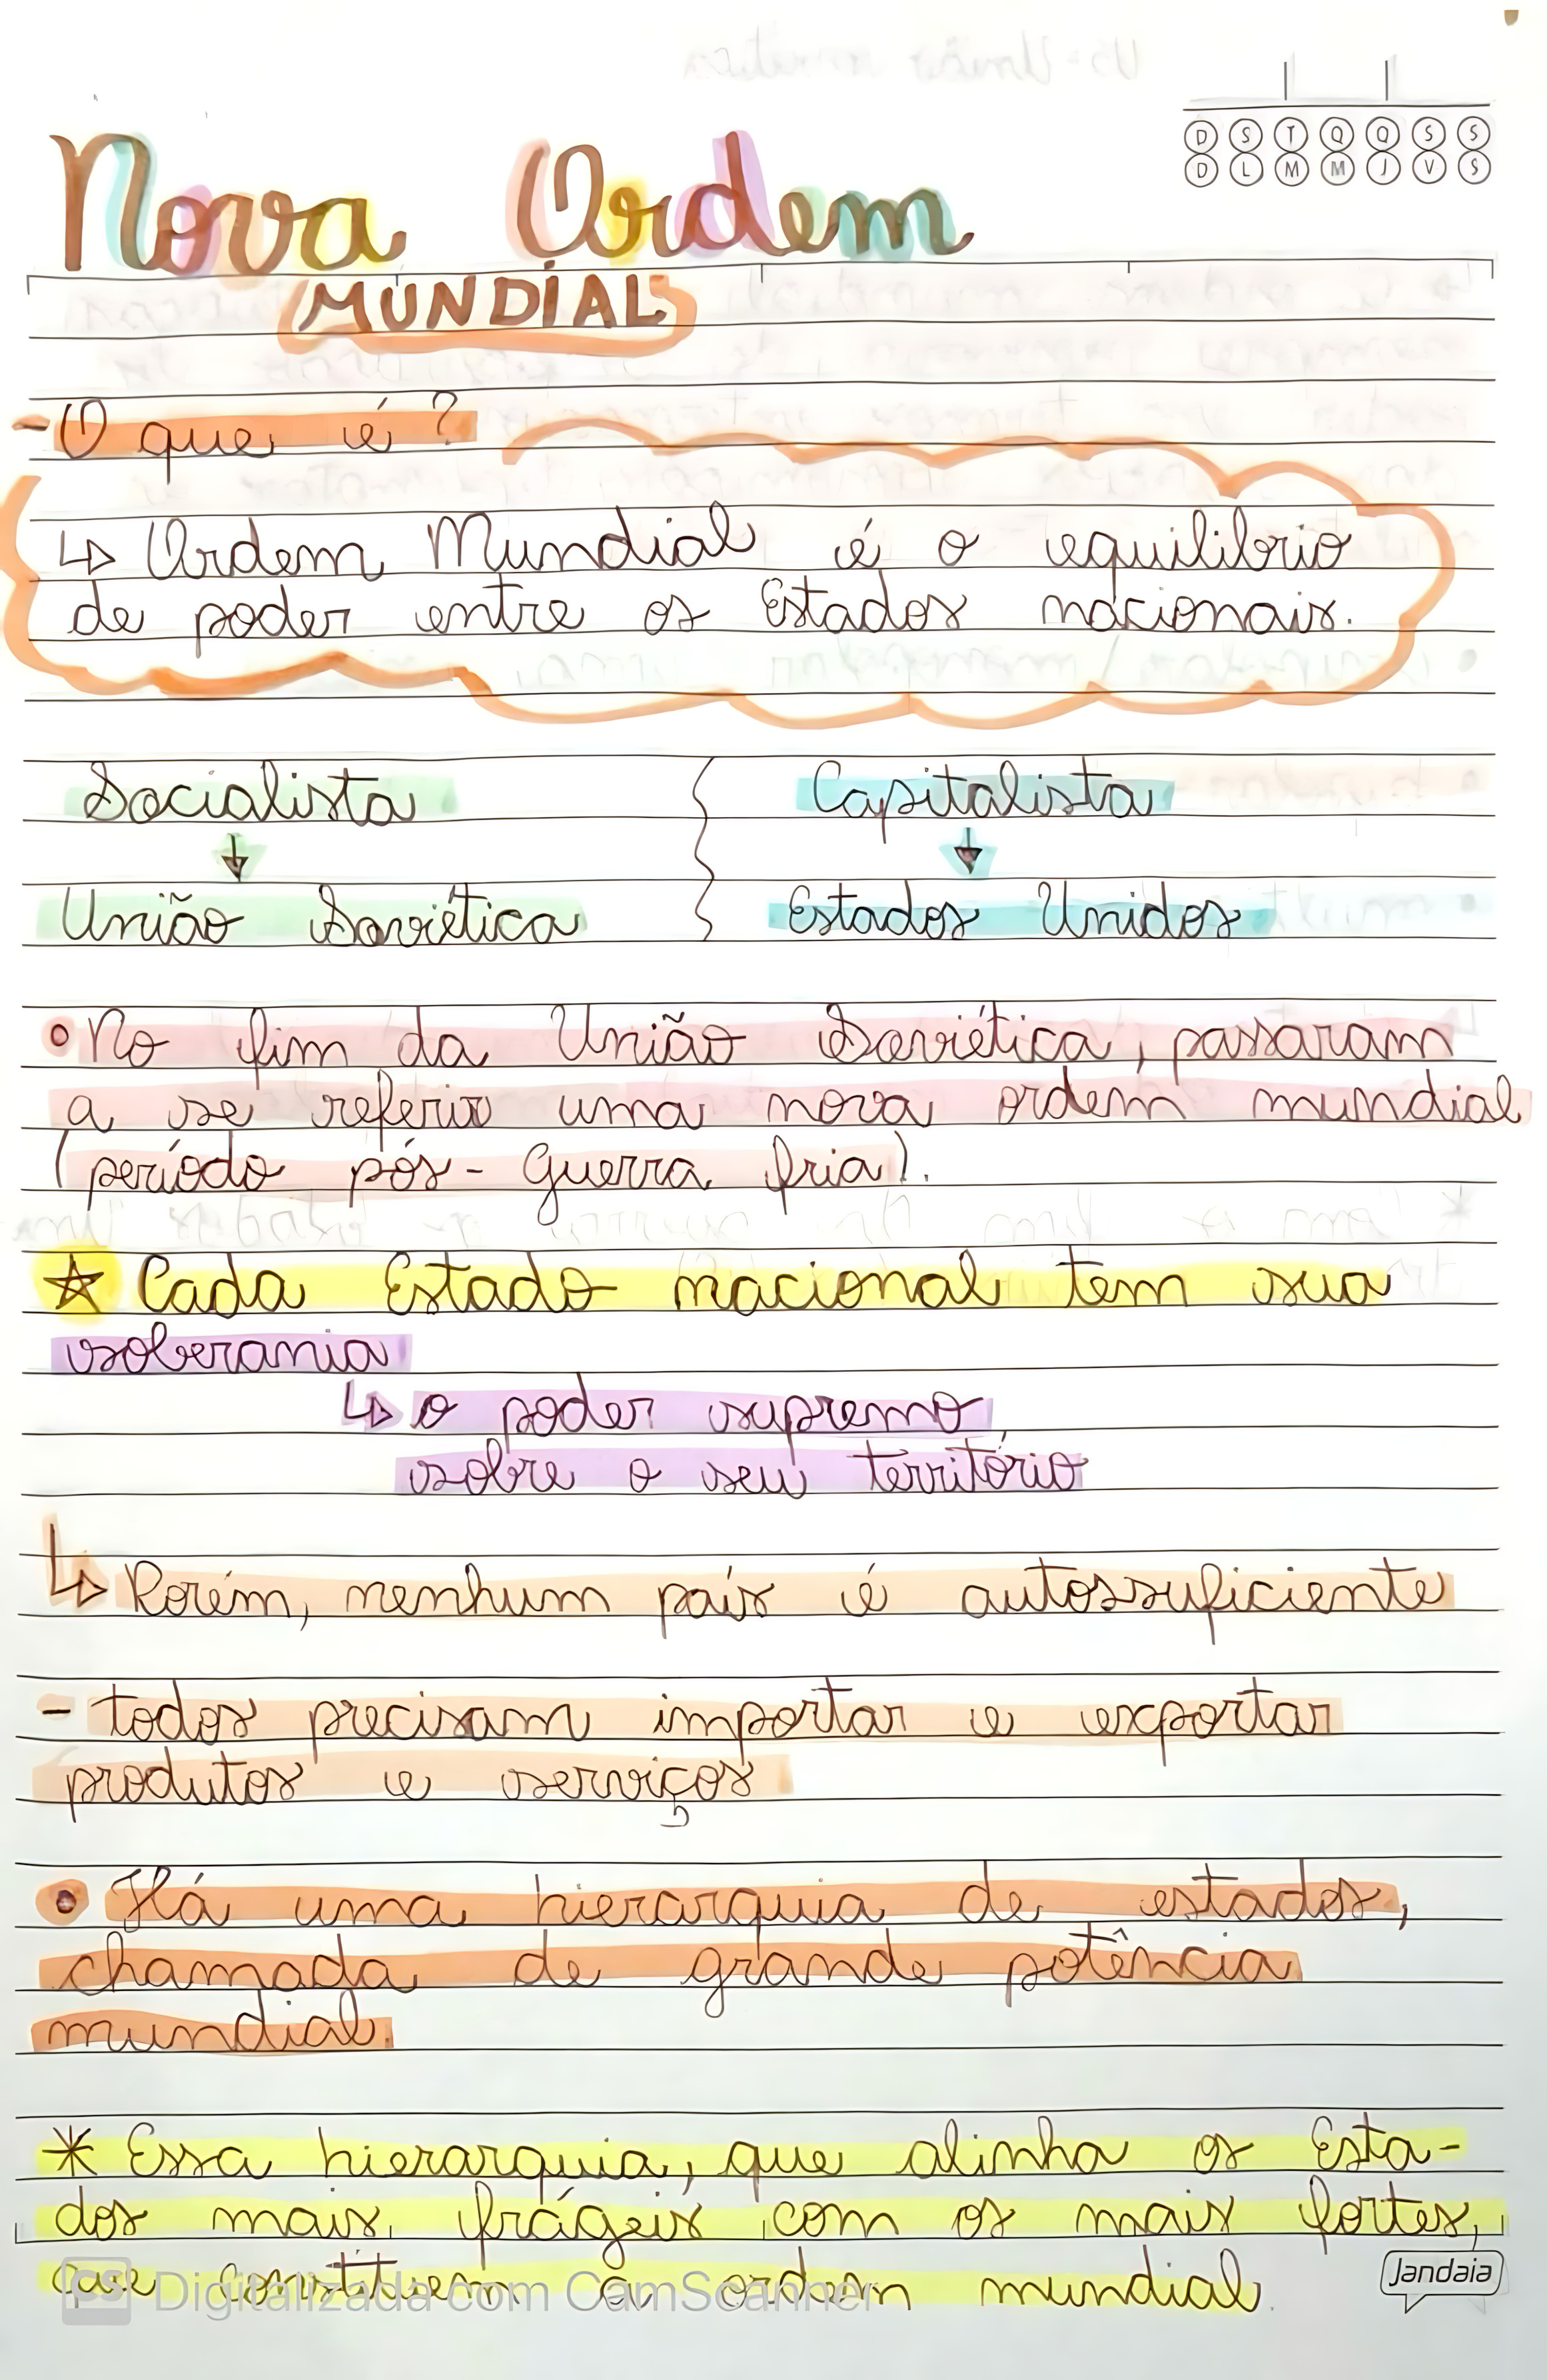 D S T Q Q S S
D L M M J V S
Nova Ordem
MUNDIAL
- O que é?
↳ Ordem Mundial é o equilibrio
de poder entre os Estados nacionais.
Socialista Capitalista
↓ ↓
União Soviética Estados Unidos
• No fim da União Soviética, passaram
a se referir uma nova ordem mundial
(período pós- Guerra fria).
☆ Cada Estado nacional tem sua
soberania
↳ o poder supremo
sobre o seu território
↳ Porém, nenhum país é autossuficiente
- todos precisam importar e exportar
produtos e serviços
• Há uma hierarquia de estados,
chamada de grande potência
mundial.
* Essa hierarquia, que alinha os Esta-
dos mais frágeis com os mais fortes,
que constituem a ordem mundial.
Jandaia
CS Digitalizada com CamScanner